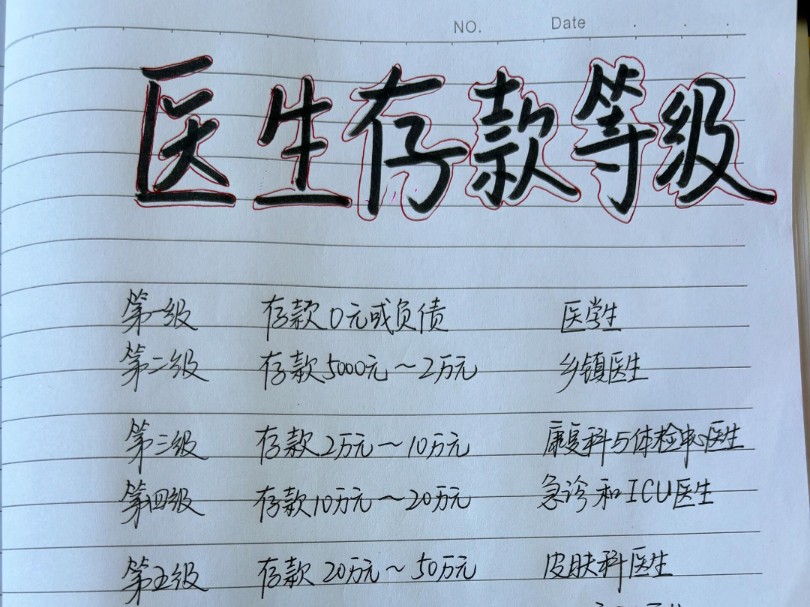 NO. Date
医生存款等级
第一级 存款0元或负债 医学生
第二级 存款5000元~2万元 乡镇医生
第三级 存款2万元~10万元 康复科与体检中心医生
第四级 存款10万元~20万元 急诊和ICU医生
第五级 存款20万元~50万元 皮肤科医生